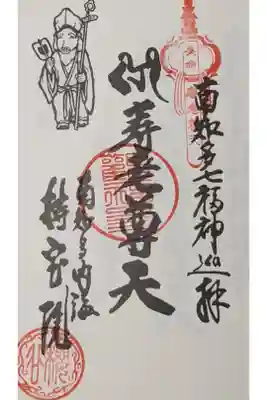 南知多七福神巡拝
寿老尊天
南知多内海
持宝院